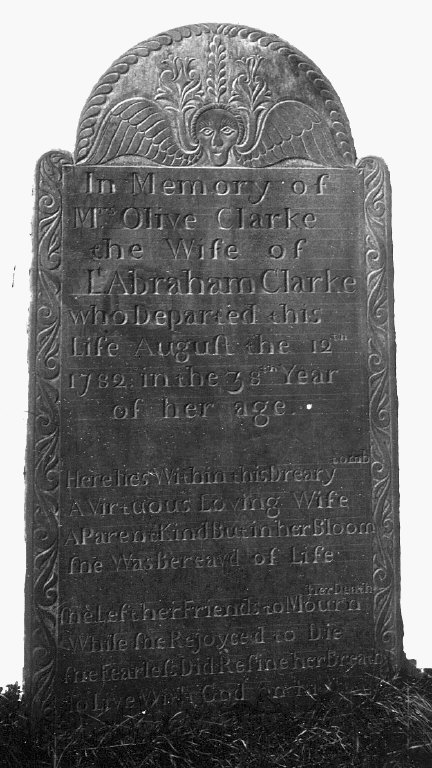 In Memory of
Mrs Olive Clarke
the Wife of
Lt Abraham Clarke
who Departed this
Life Auguſt the 12th
1782 in the 38th Year
of her age.
Here lies Within this Dreary tomb
A Virtuous Loving Wife
A Parent Kind But in her Bloom
ſhe Was Bereavd of Life
her Death
ſhe Left her Friends to Mourn
While ſhe Rejoyced to Die
ſhe fearleſs Did Reſine her Breath
to Live With God on